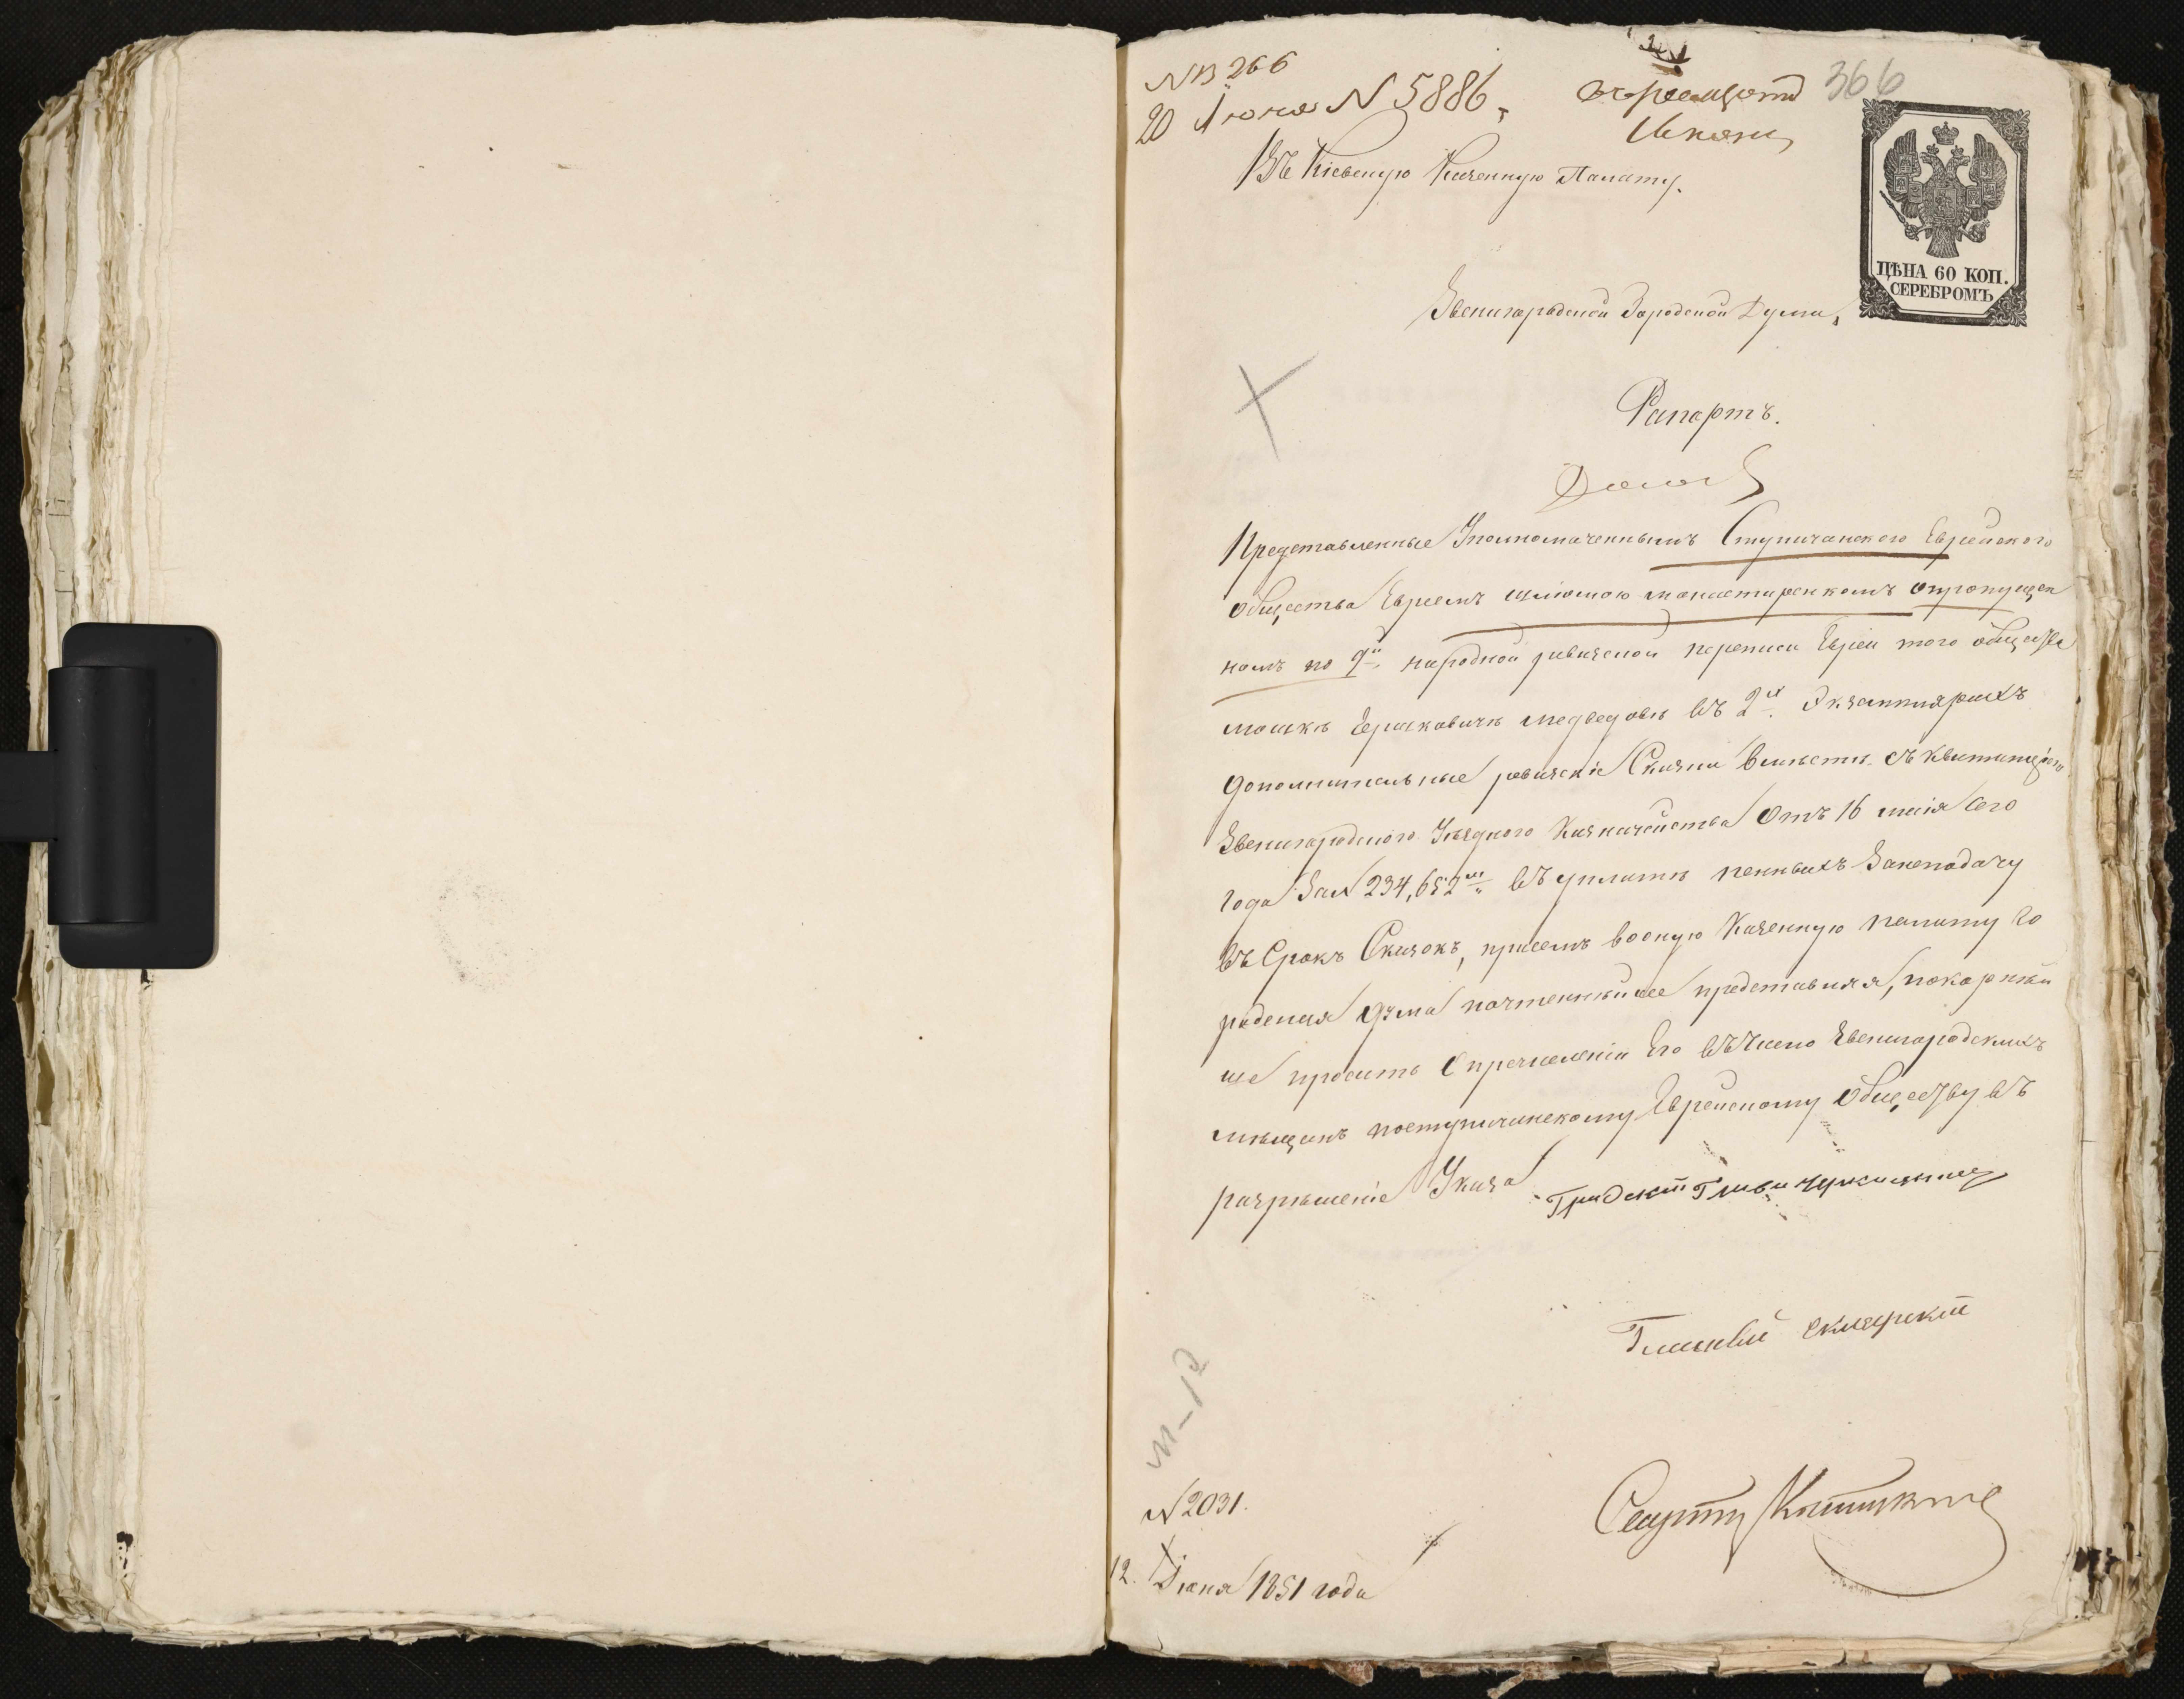 NВ 266
366
20 Июня N 5886.
Въ Кіевскую Казенную Палату.
ЦѢНА 60 КОП.
СЕРЕБРОМЪ
Звенигородской Городской Думы,
Рапортъ.
Представленные Уполномоченнымъ Ступичанского Еврейского
общества Евреемъ Шліомою Манастирскомъ опропущен
номъ по 9й народной ревизской переписи Евреи того общества
Мошкѣ Ершковичѣ Медведовѣ въ 2х Экземплярахъ
дополнительные ревизскіе Сказки вместѣ съ квитанціею
Звенигородского Уѣздного Казначейства отъ 16 маія сего
года за N 234,652м въ уплатѣ пенныхъ Занеподачу
въ Срокъ Сказокъ, присемъ вооную Казенную палату Го
родская дума почтеннѣйшее представляя, покорнѣй
ше просить Опречисленіи Его въ число Звенигородскихъ
мѣщанъ поступичанскому Еврейскому Обществу въ
разрѣшеніе Указа
Гласный
N 2031.
12. Іюня 1851 года